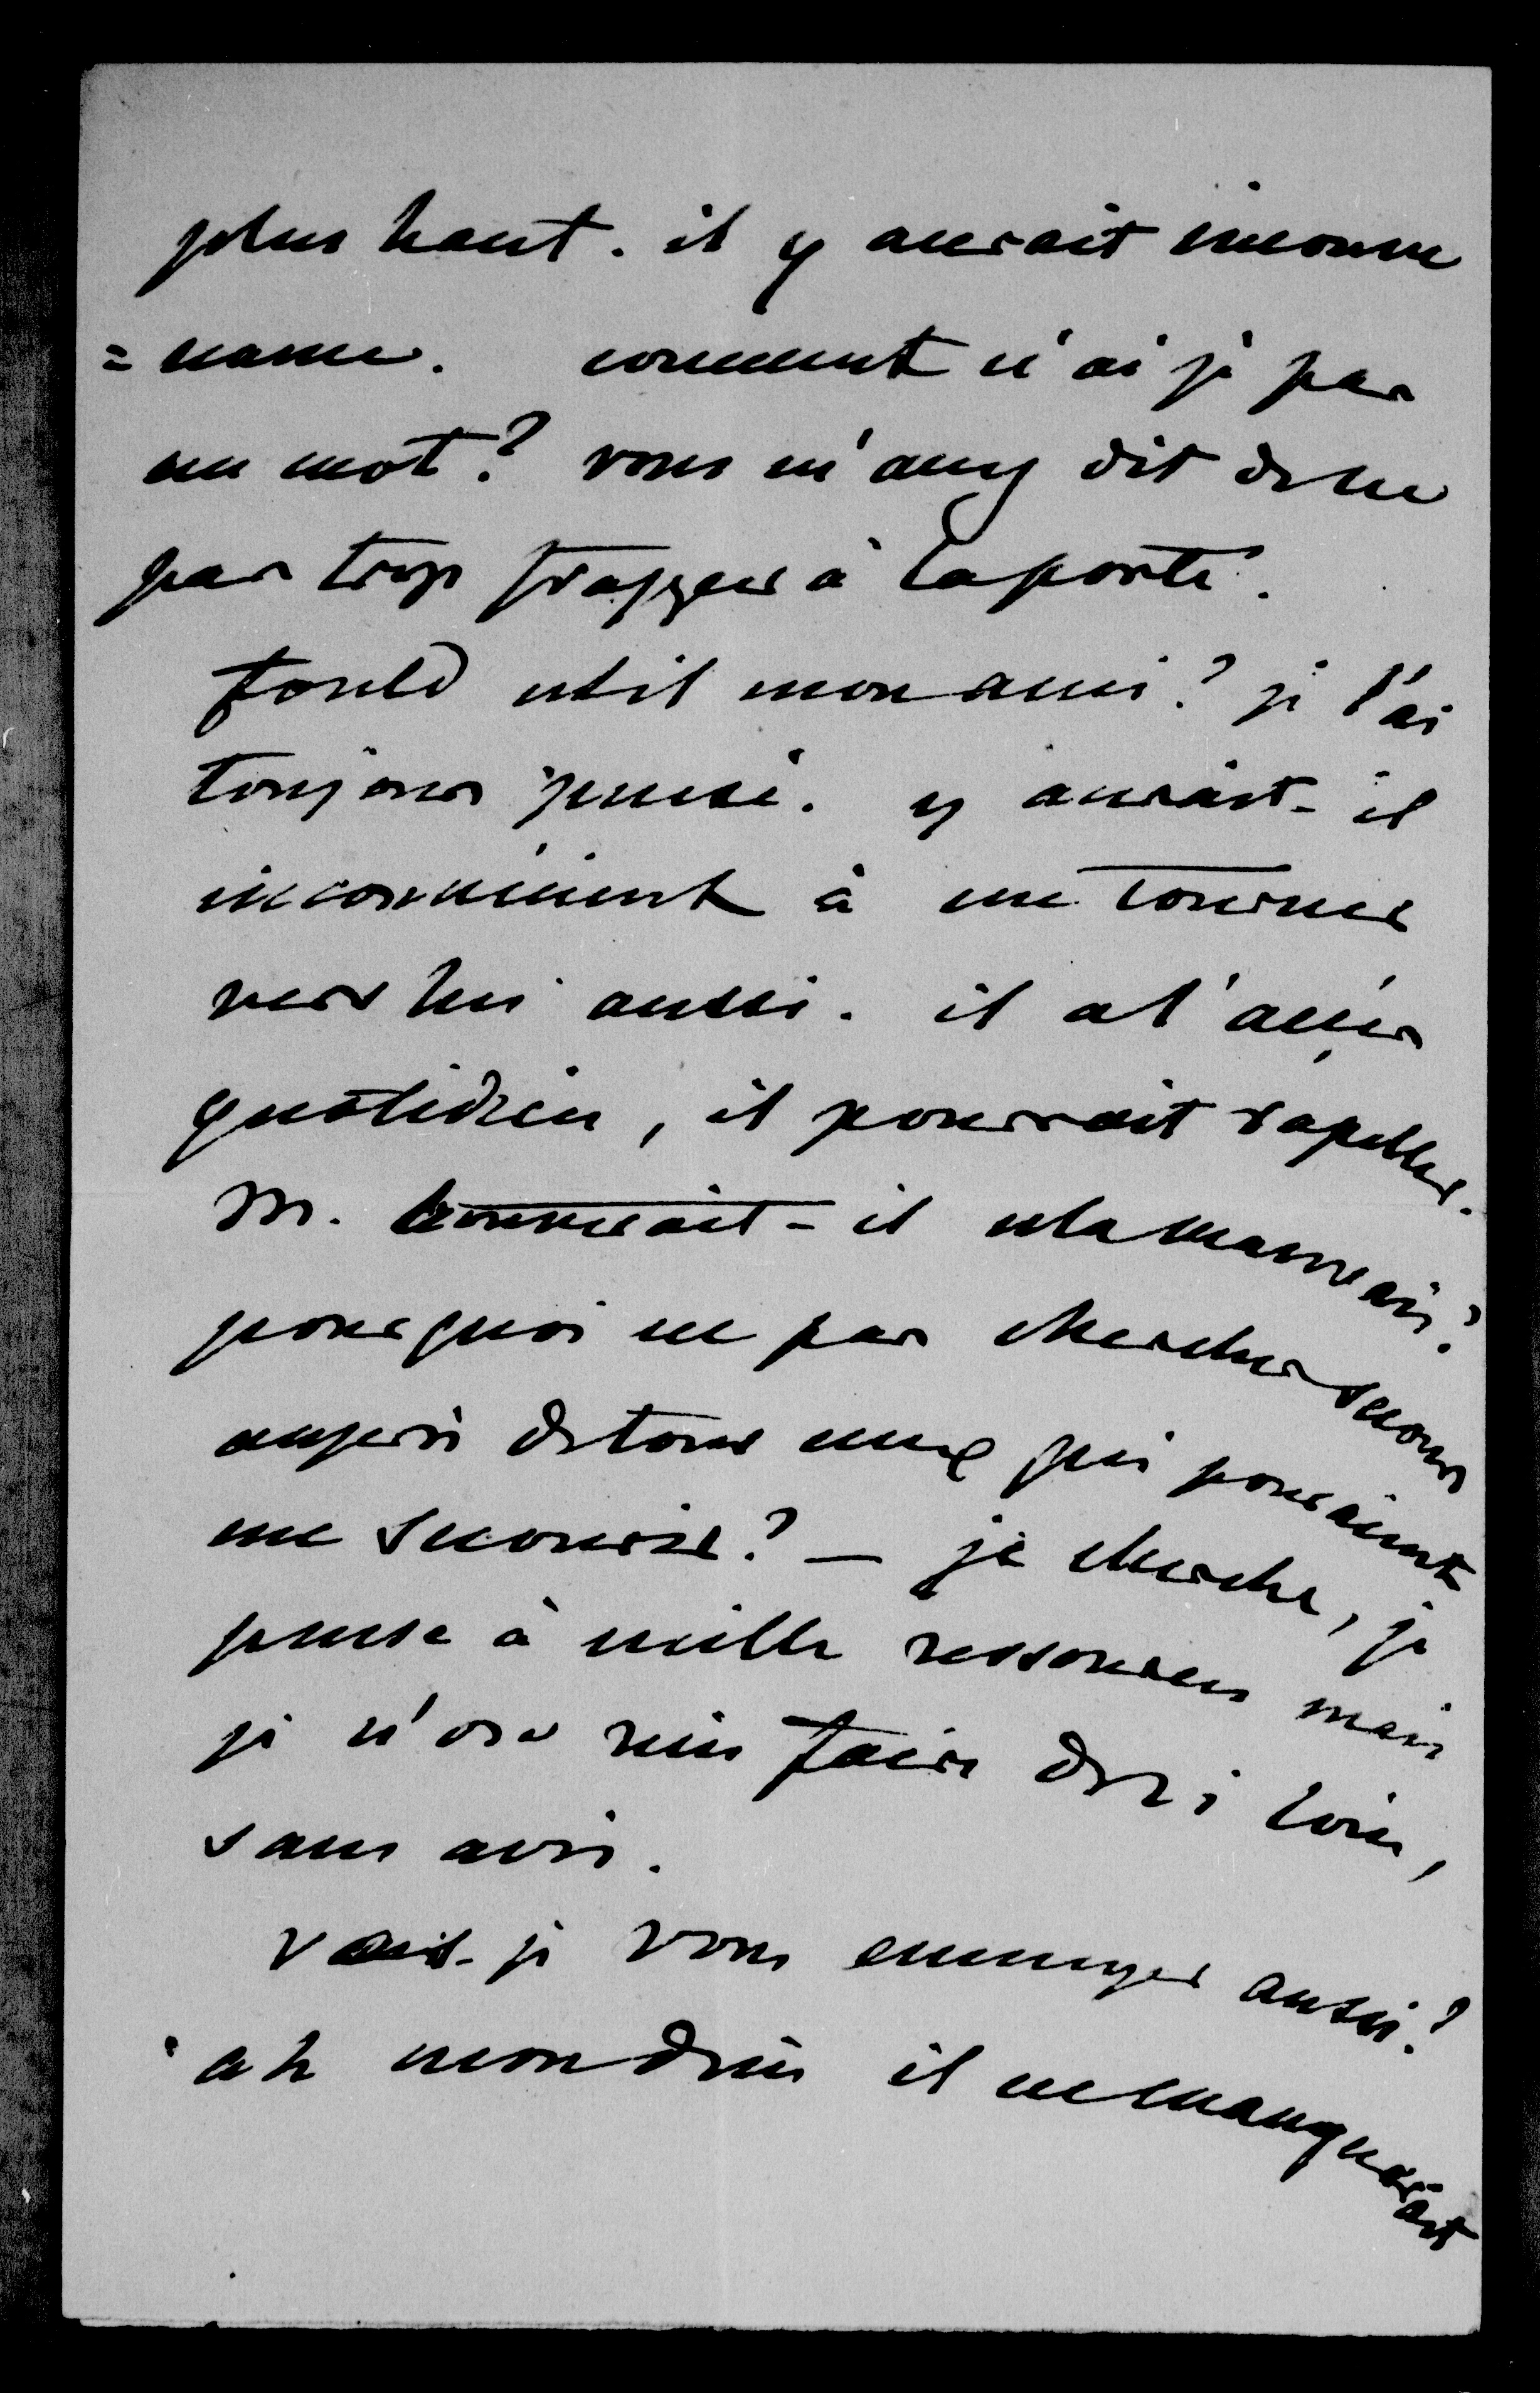 plus haut. il y aurait inconve
=nance. comment n'ai je pas
un mot? vous m'avez dit de ne
pas trop frapper à la porte.
fould est il mon ami? je l'ai
toujours pensé. y aurait-il
inconvénient à me tourner
vers lui aussi. il a l'accès
quotidien, il pourrait rapeller.
M. trouverait-il cela mauvais?
pourquoi ne pas chercher secours
auprès de tous ceux qui pouraient
me secourir? — je cherche, je
pense à mille ressources mais
je n'ose rien faire de si loin,
sans avis.
vais-je vous ennuyer aussi?
ah mon dieu il ne manquerait